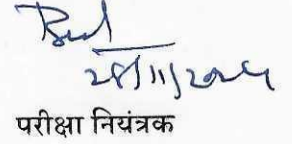 28/11/2024
परीक्षा नियंत्रक